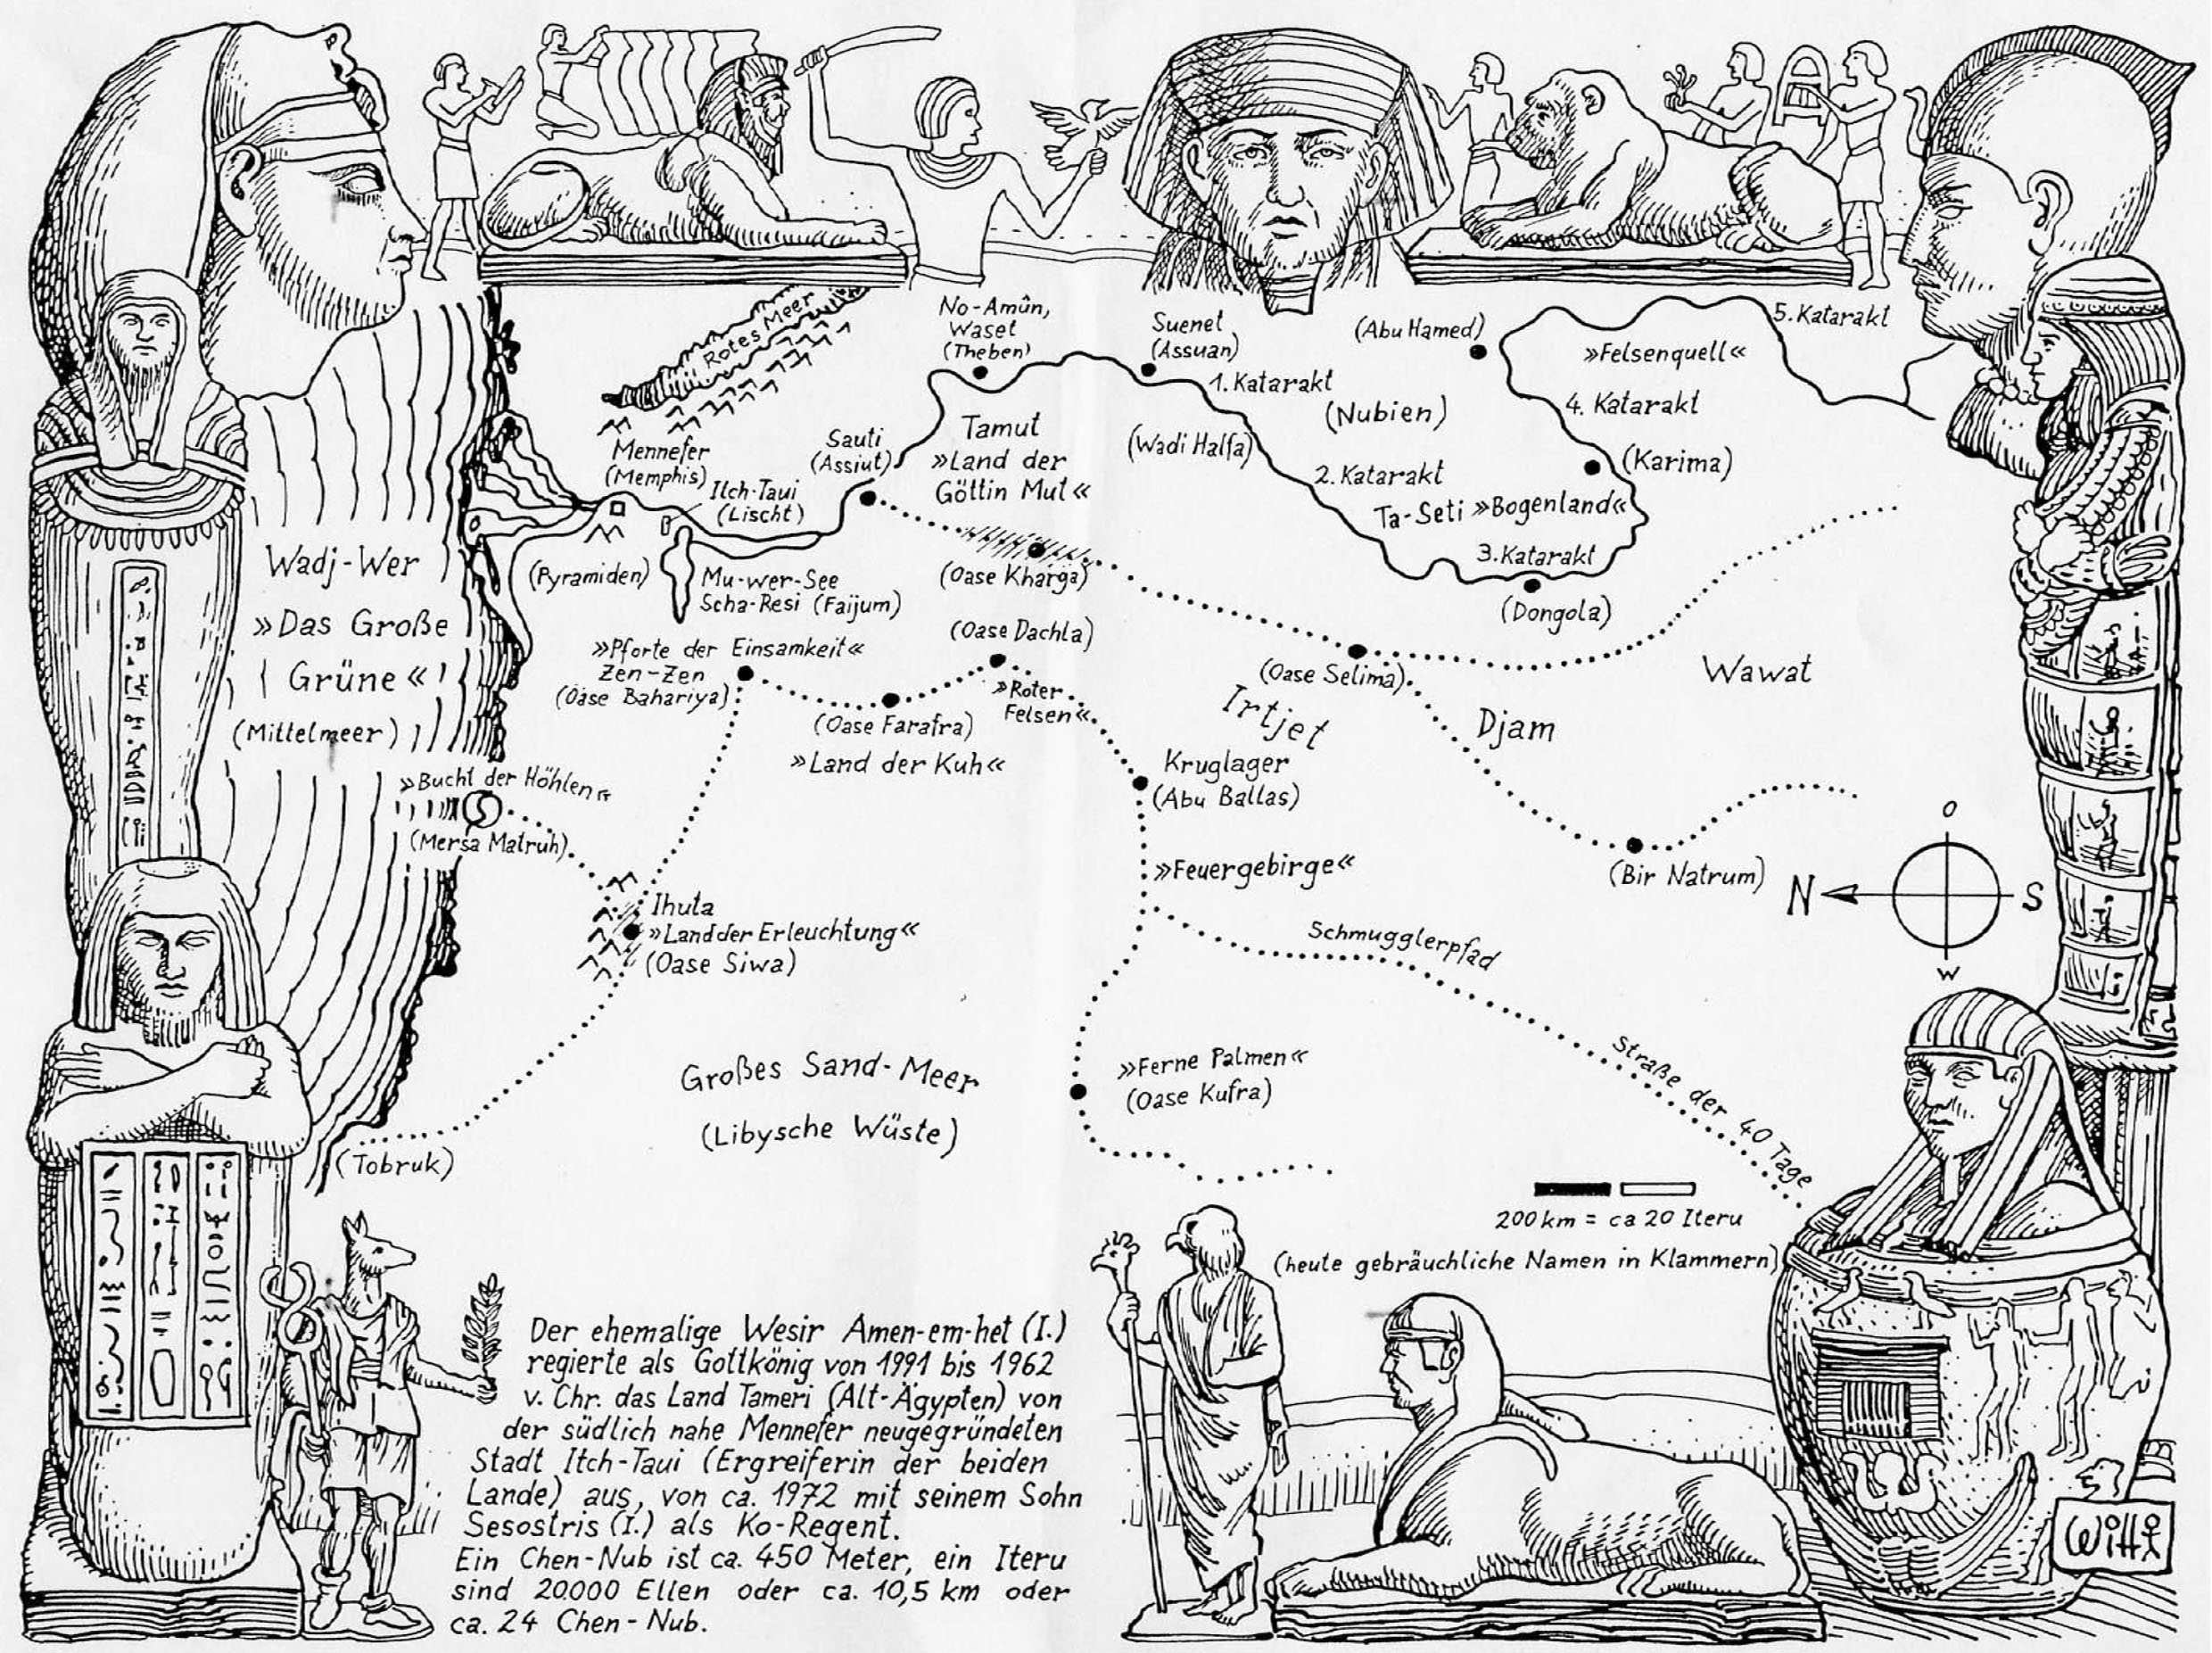 Rotes Meer
No-Amûn,
Waset
(Theben)
Suenet
(Assuan)
(Abu Hamed)
5. Katarakt
»Felsenquell«
1. Katarakt
(Nubien)
4. Katarakt
Mennefer
(Memphis)
Sauti
(Assiut)
Tamut
»Land der
Göttin Mut«
(Wadi Halfa)
2. Katarakt
(Karima)
Itch-Taui
(Lischt)
Ta-Seti »Bogenland«
3. Katarakt
(Dongola)
Wadj-Wer
»Das Große
Grüne«
(Mittelmeer)
(Pyramiden)
Mu-wer-See
Scha-Resi (Faijum)
(Oase Kharga)
(Oase Dachla)
»Pforte der Einsamkeit«
Zen-Zen
(Oase Bahariya)
(Oase Farafra)
»Land der Kuh«
»Roter
Felsen«
(Oase Selima)
Irtjet
Djam
Wawat
»Bucht der Höhlen«
(Mersa Matruh)
Kruglager
(Abu Ballas)
»Feuergebirge«
(Bir Natrum)
O
N
S
W
Ihuta
»Land der Erleuchtung«
(Oase Siwa)
Schmugglerpfad
Straße der 40 Tage
Großes Sand-Meer
(Libysche Wüste)
»Ferne Palmen«
(Oase Kufra)
(Tobruk)
200 km = ca 20 Iteru
(heute gebräuchliche Namen in Klammern)
Der ehemalige Wesir Amen-em-het (I.)
regierte als Gottkönig von 1991 bis 1962
v. Chr. das Land Tameri (Alt-Ägypten) von
der südlich nahe Mennefer neugegründeten
Stadt Itch-Taui (Ergreiferin der beiden
Lande) aus, von ca. 1972 mit seinem Sohn
Sesostris (I.) als Ko-Regent.
Ein Chen-Nub ist ca. 450 Meter, ein Iteru
sind 20000 Ellen oder ca. 10,5 km oder
ca. 24 Chen-Nub.